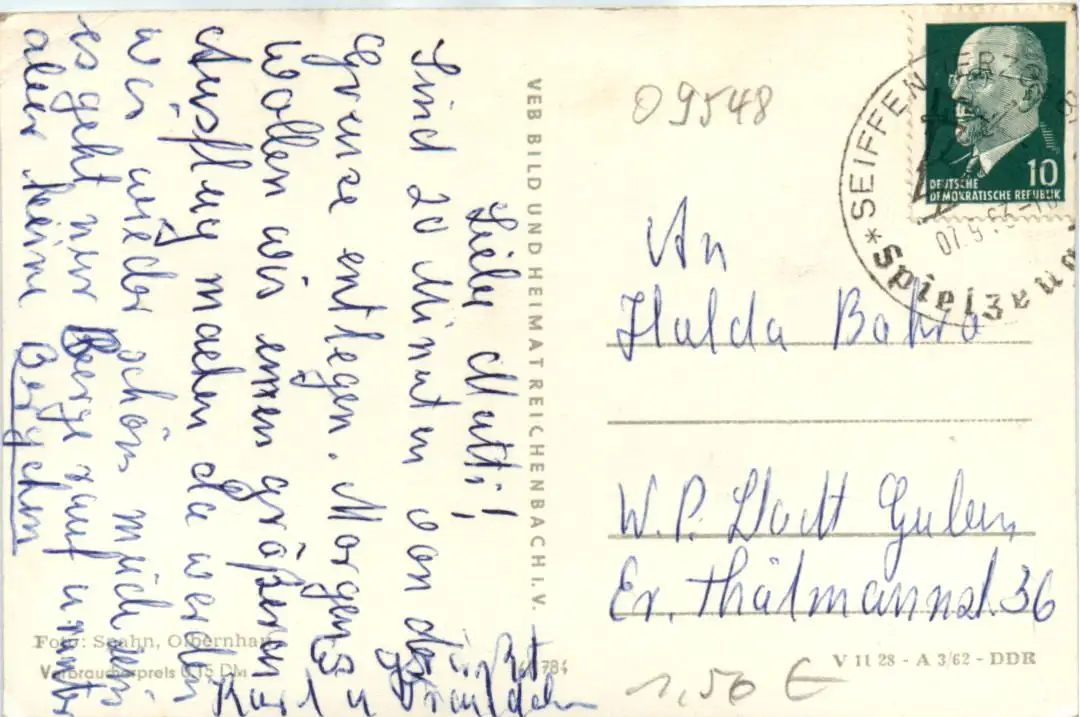 Liebe Mutti!
Sind 20 Minuten von der
Grenze entlegen. Morgen
wollen wir einen größeren
Ausflug machen da werden
wir wieder schön müde sein
es geht nur Berge rauf u. runter
aber keine Bergchen
Es
grüßt
Karl u
VEB BILD UND HEIMAT REICHENBACH i. V.
Foto: Spahn, Olbernhau
Verbraucherpreis 0,15 DM
V 11 28 - A 3/62 - DDR
09548
DEUTSCHE
DEMOKRATISCHE REPUBLIK
10
* SEIFFEN (ERZGEB
Spielzeug
An
Hulda Bahro
W. P. Stadt Guben,
Er. Thälmannst. 36
1,50 €